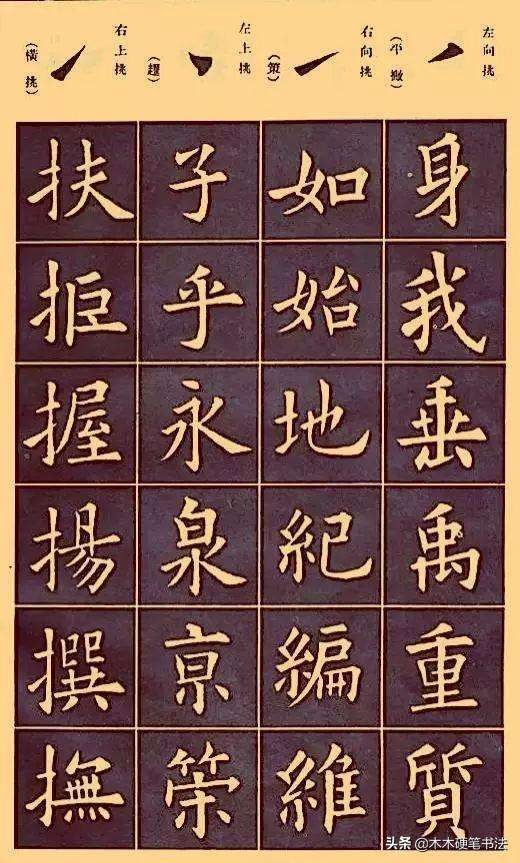 左向挑
(平撇)
身我垂禹重質
右向挑
(策)
如始地紀編維
左上挑
(趯)
子乎永泉亰策
右上挑
(橫挑)
扶拒握揚撰撫
头条 @木木硬笔书法